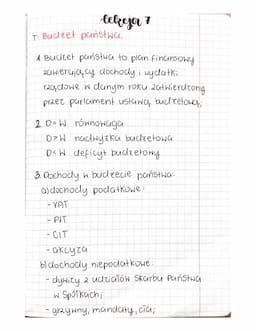 Lekcja 7
T: Budżet państwa.
1. Budżet państwa to plan finansowy
zawierający dochody i wydatki
rządowe w danym roku zatwierdzony
przez parlament ustawą budżetową.
2. D=W równowaga
D>W nadwyżka budżetowa
D<W deficyt budżetowy
3. Dochody w budżecie państwa:
a) dochody podatkowe:
- VAT
- PIT
- CIT
- akcyza
b) dochody niepodatkowe:
- dywidy z udziałów Skarbu Państwa
w spółkach;
- grzywny, mandaty, cła;